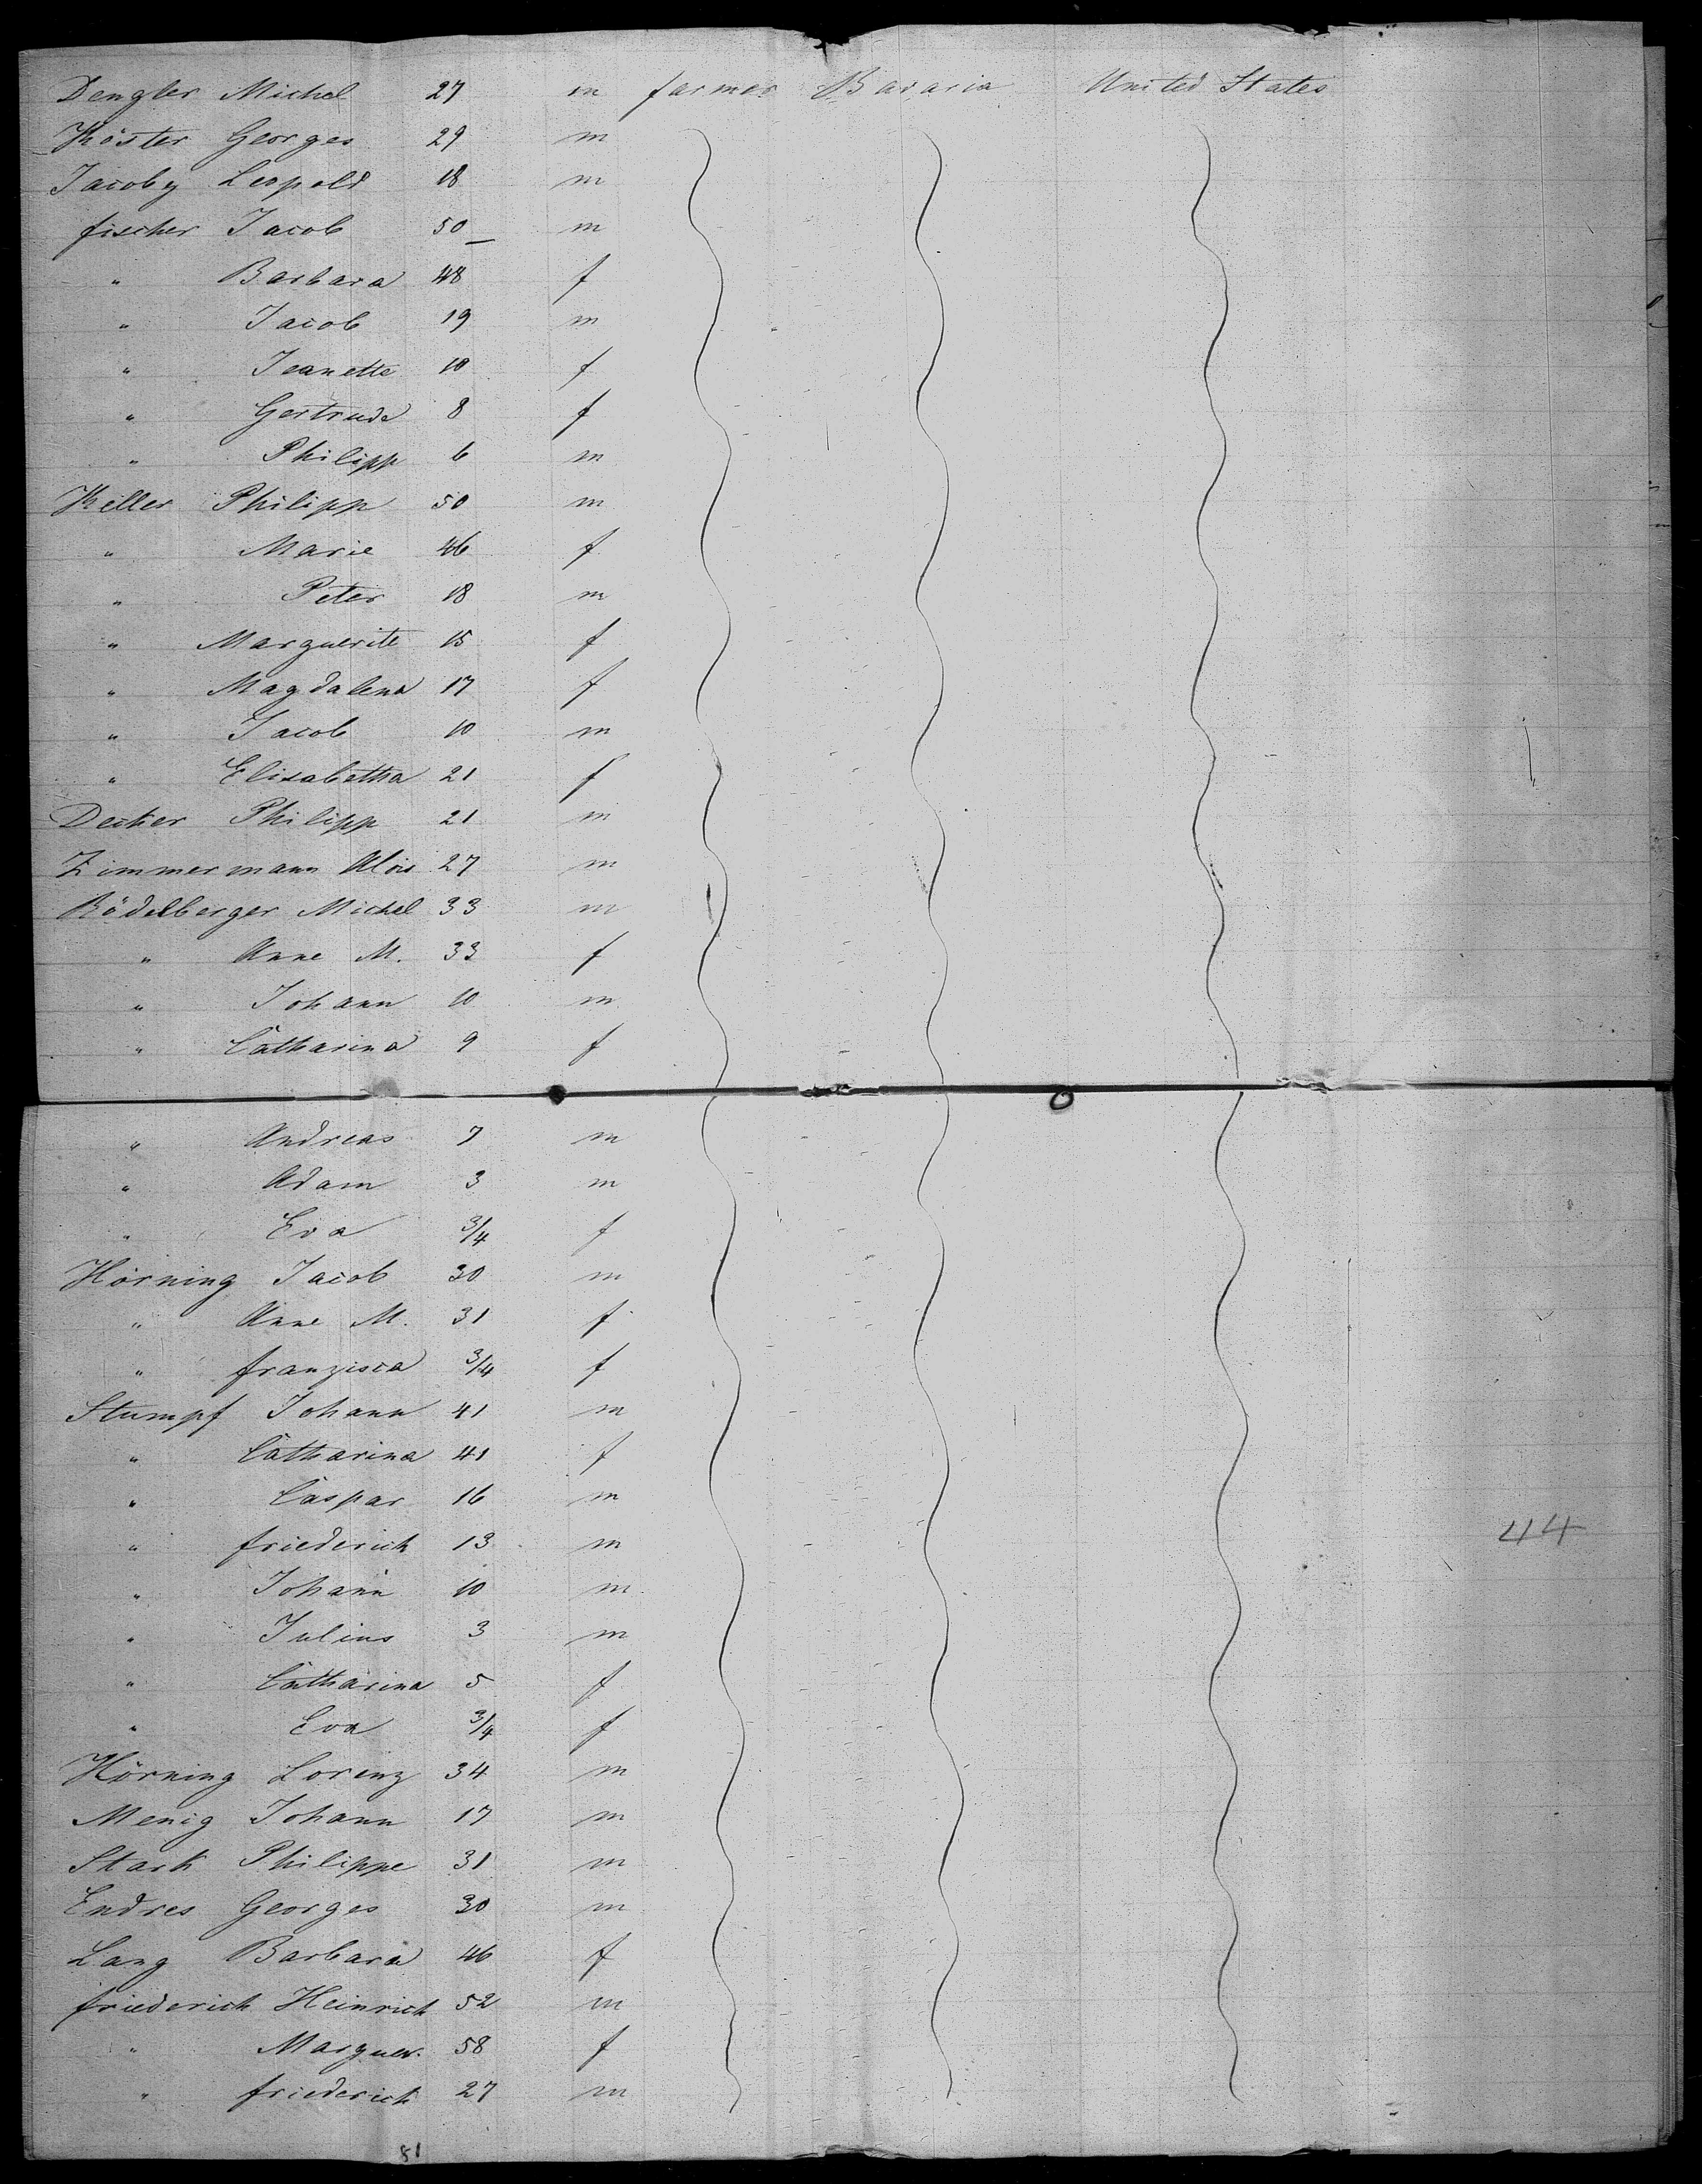 Dengler Michel 27 m farmer Bavaria United States
Köster Georges 29 m
Jacoby Leopold 18 m
fischer Jacob 50 m
" Barbara 48 f
" Jacob 19 m
" Jeanette 10 f
" Gertrude 8 f
" Philipp 6 m
Keller Philipp 50 m
" Marie 46 f
" Peter 18 m
" Marguerite 15 f
" Magdalena 17 f
" Jacob 10 m
" Elisabetha 21 f
Decker Philipp 21 m
Zimmermann Alois 27 m
Bödelberger Michel 33 m
" Anne M. 33 f
" Johann 10 m
" Catharina 9 f
" Andreas 7 m
" Adam 3 m
" Eva 3/4 f
Hörning Jacob 30 m
" Anne M. 31 f
" franzisca 3/4 f
Stumpf Johann 41 m
" Catharina 41 f
" Caspar 16 m
" friederich 13 m
44
" Johann 10 m
" Julius 3 m
" Catharina 5 f
" Eva 3/4 f
Hörning Lorenz 34 m
Menig Johann 17 m
Stark Philippe 31 m
Endres Georges 30 m
Lang Barbara 46 f
friederich Heinrich 52 m
" Marguer. 58 f
" friederich 27 m
81